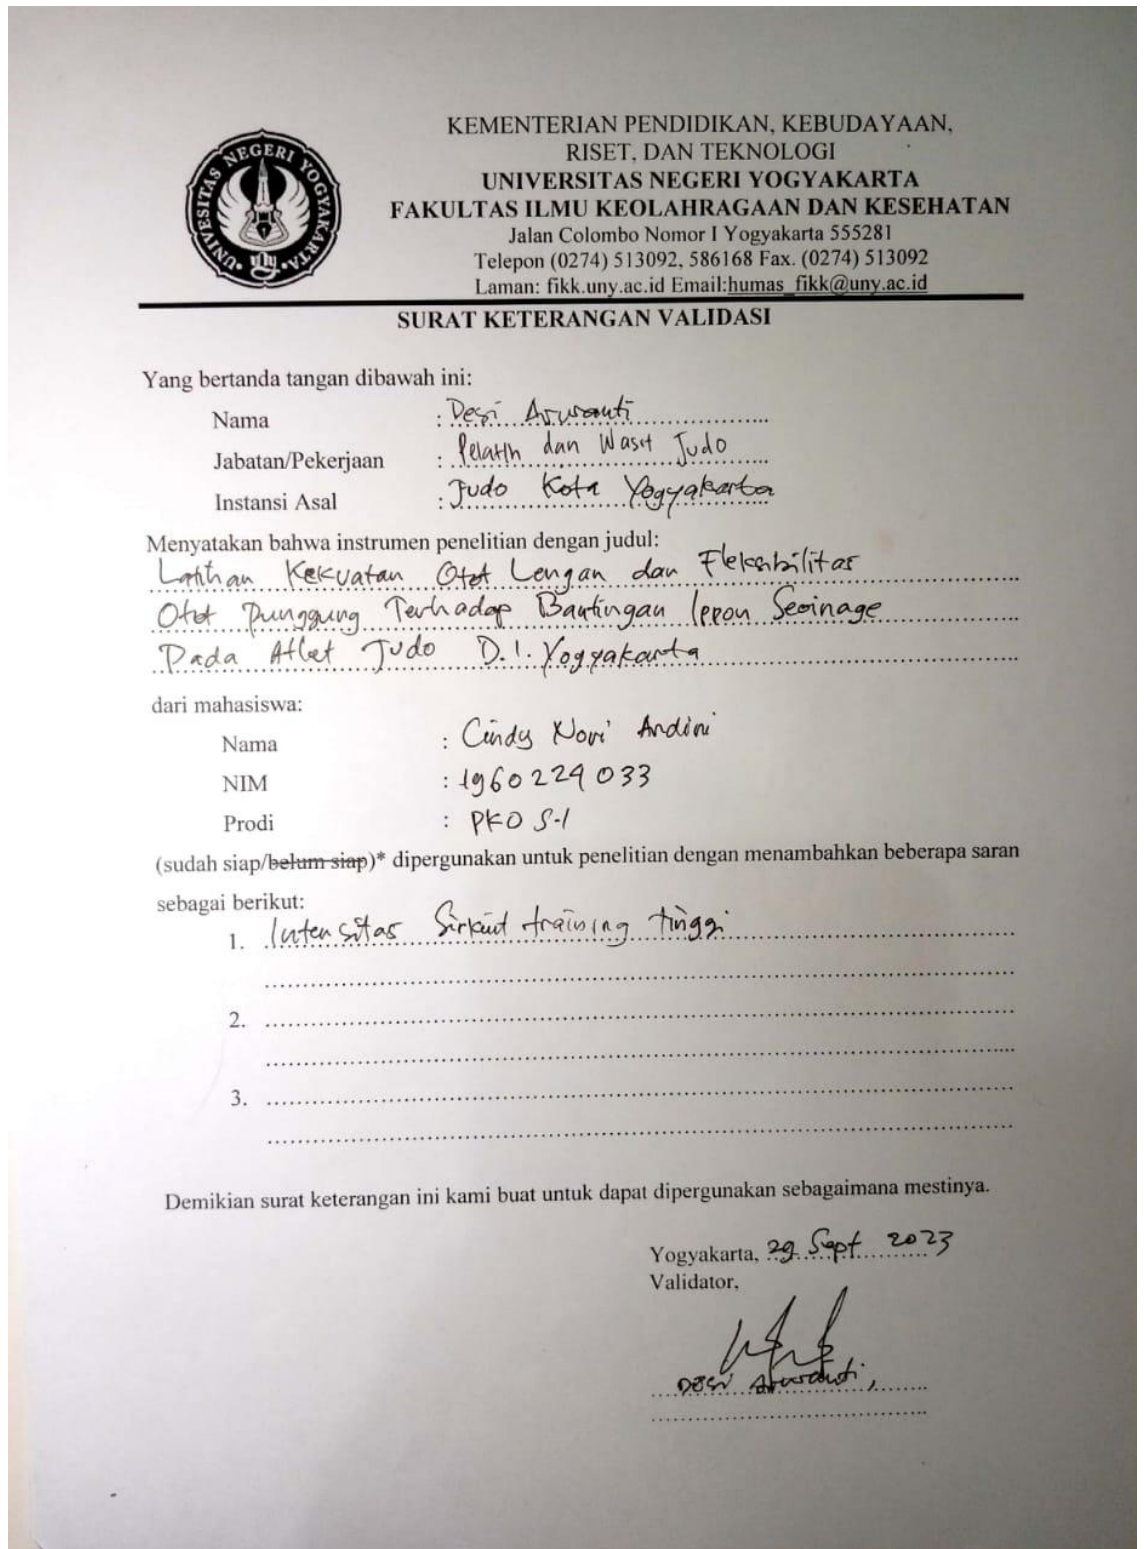 UNIVESITAS NEGERI YOGYAKARTA
KEMENTERIAN PENDIDIKAN, KEBUDAYAAN,
RISET, DAN TEKNOLOGI
UNIVERSITAS NEGERI YOGYAKARTA
FAKULTAS ILMU KEOLAHRAGAAN DAN KESEHATAN
Jalan Colombo Nomor I Yogyakarta 555281
Telepon (0274) 513092, 586168 Fax. (0274) 513092
Laman: fikk.uny.ac.id Email:humas_fikk@uny.ac.id
SURAT KETERANGAN VALIDASI
Yang bertanda tangan dibawah ini:
Nama : Desi
Jabatan/Pekerjaan : Pelatih dan Wasit Judo
Instansi Asal : Judo Kota Yogyakarta
Menyatakan bahwa instrumen penelitian dengan judul:
Latihan Kekuatan Otot Lengan dan Fleksibilitas
Otot Punggung Terhadap Bantingan Ippon Seoinage
Pada Atlet Judo D.I. Yogyakarta
dari mahasiswa:
Nama : Cindy Novi Andini
NIM : 1960224033
Prodi : PKO S-1
(sudah siap/belum siap)* dipergunakan untuk penelitian dengan menambahkan beberapa saran
sebagai berikut:
1. Intensitas Sirkuit training tinggi
2.
3.
Demikian surat keterangan ini kami buat untuk dapat dipergunakan sebagaimana mestinya.
Yogyakarta, 29 Sept 2023
Validator,
Desi